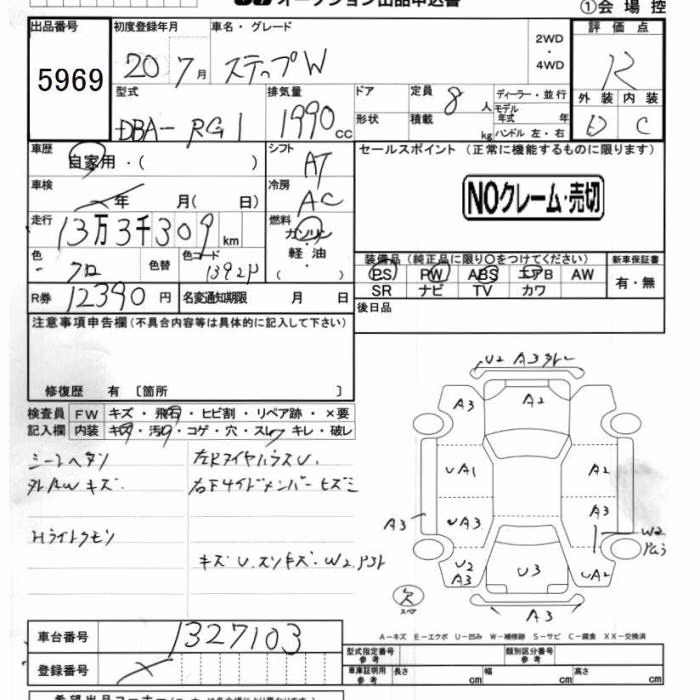 オークション出品申込書
①会場控
出品番号 初度登録年月 車名・グレード 2WD ・ 4WD 評価点
5969 20 7月 ステップW R
型式 排気量 ドア 定員 8人 ディーラー・並行 外装 内装
DBA- RG1 1990cc 形状 積載 kg モデル年式 年 D C
ハンドル 左・右
車歴 自家用・( ) シフト AT セールスポイント (正常に機能するものに限ります)
車検 年 月( 日) 冷房 AC NOクレーム・売切
走行 13万3千309km 燃料 ガソリン・軽油 ( )
色 クロ 色替 色コード B92P 装備品 (純正品に限り○をつけてください) 新車保証書
PS PW ABS エアB AW 有・無
SR ナビ TV カワ
R券 12390円 名変通知期限 月 日 後日品
注意事項申告欄(不具合内容等は具体的に記入して下さい)
修復歴 有 〔箇所 〕
検査員 FW キズ・飛石・ヒビ割・リペア跡・×要
記入欄 内装 キズ・汚れ・コゲ・穴・スレ・キレ・破レ
シートヘタリ 左RタイヤハウスU.
外AWキズ. 右Fサイドメンバーヒズミ
Hライトクモリ
キズ U.スリキズ.W2
U2 A3
A3 A2
UA1 A2
A3 UA3 A3
W2
U2 A3 U3 UA2
欠
A3
A-キズ E-エクボ U-凹み W-補修跡 S-サビ C-腐食 XX-交換済
車台番号 1327103 型式指定番号 参考 類別区分番号 参考
登録番号 車庫証明用 参考 長さ cm 幅 cm 高さ cm